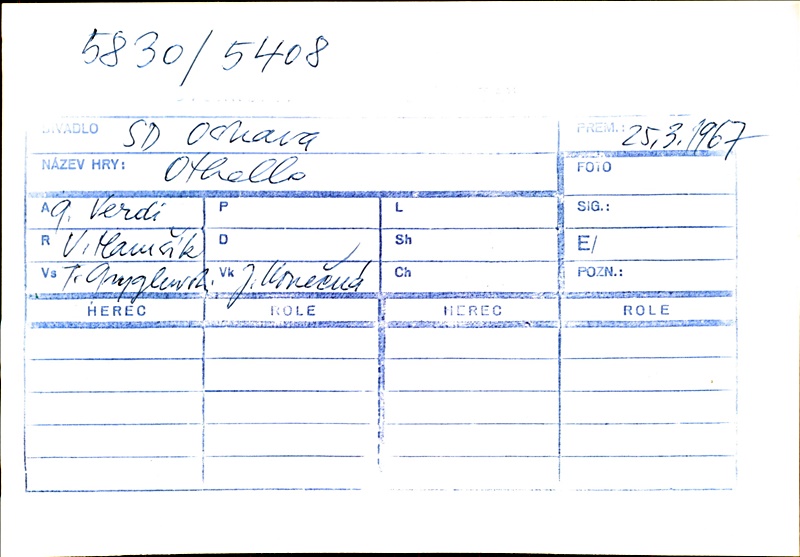 5830/5408
DIVADLO SD Ostrava PREM.: 25.3.1967
NÁZEV HRY: Othello FOTO
A G. Verdi P L SIG.:
R V. Hamšík D Sh E/
Vs T. Vk J. Konečná Ch POZN.:
HEREC ROLE HEREC ROLE